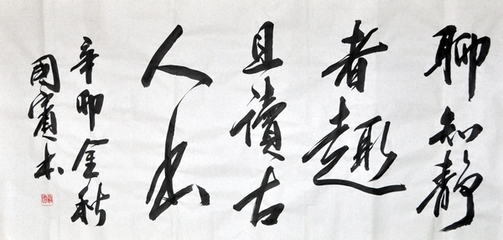 聊知静
者趣
且读古
人书
辛卯金秋
国宾书